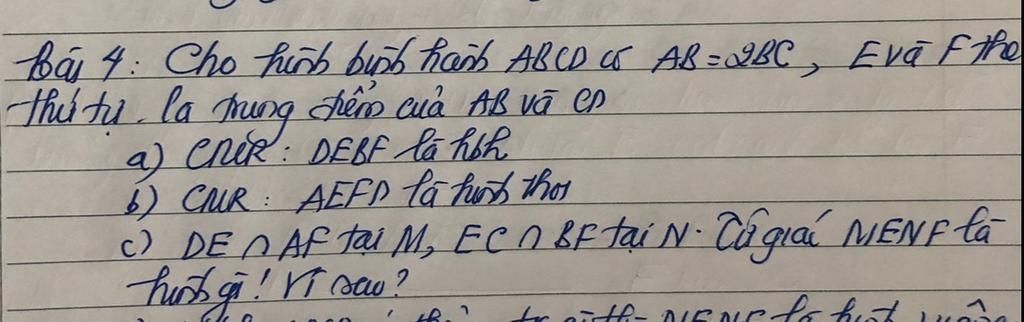 Bài 4: Cho hình bình hành ABCD có AB = 2BC, E và F the
thứ tự là trung điểm của AB và CD
a) CMR: DEBF là hbh
b) CMR: AEFD là hình thoi
c) DE ∩ AF tại M, EC ∩ BF tại N. Tứ giác MENF là
hình gì! Vì sao?
MENF là hình vuông